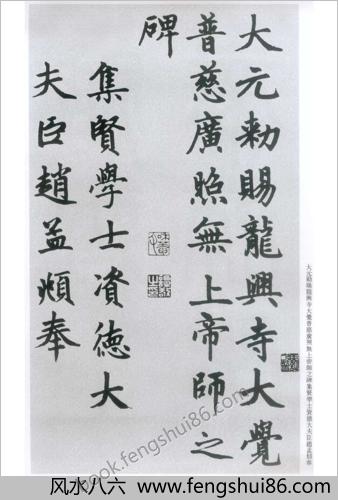 大元勑賜龍興寺大覺
普慈廣照無上帝師之
碑
集賢學士資德大
夫臣趙孟頫奉
大元勑賜龍興寺大覺普慈廣照無上帝師之碑集賢學士資德大夫臣趙孟頫奉
book.fengshui86.com
风水八六 www.fengshui86.com